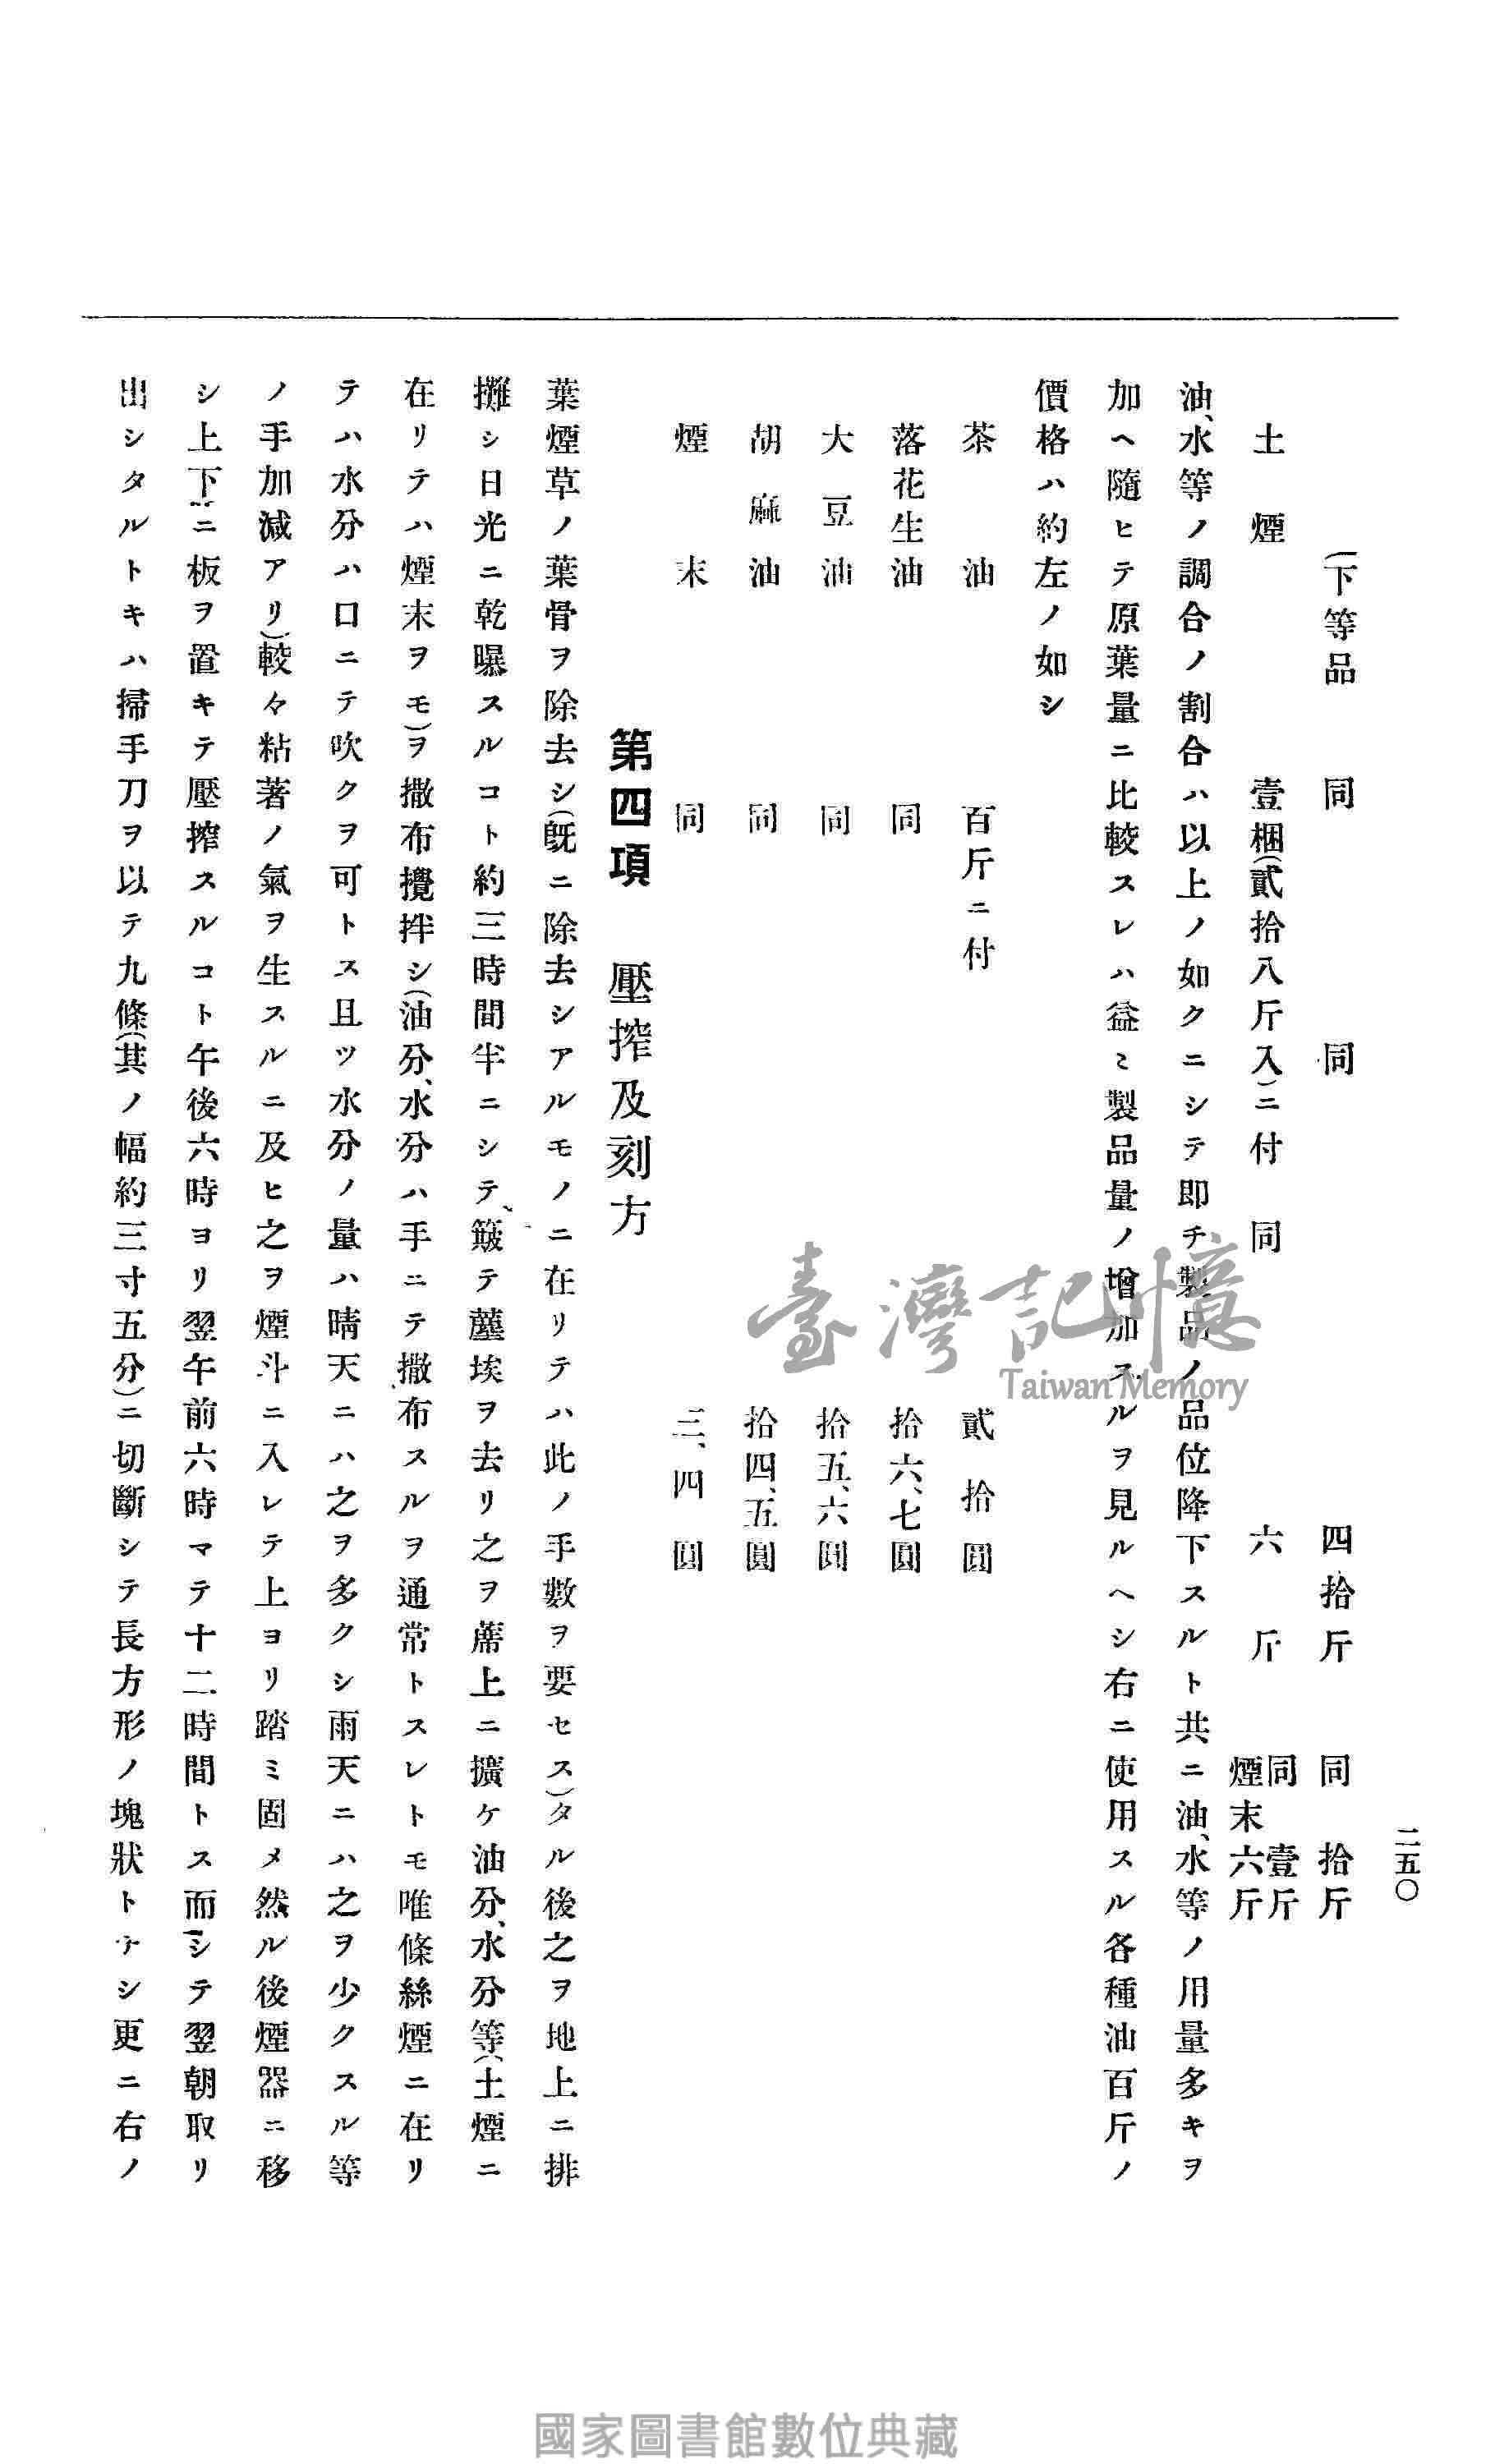 二五〇
(下等品　同　同　四拾斤　同　拾斤
土煙　壹梱(貳拾八斤入)ニ付　同　六斤　同　壹斤
煙末六斤
油、水等ノ調合ノ割合ハ以上ノ如クニシテ即チ製品ノ品位降下スルト共ニ油、水等ノ用量多キヲ
加ヘ隨ヒテ原葉量ニ比較スレハ益ミ製品量ノ增加スルヲ見ルヘシ右ニ使用スル各種油百斤ノ
價格ハ約左ノ如シ
茶油　百斤ニ付　貳拾圓
落花生油　同　拾六、七圓
大豆油　同　拾五、六圓
胡麻油　同　拾四、五圓
煙末　同　三、四圓
第四項　壓搾及刻方
葉煙草ノ葉骨ヲ除去シ(旣ニ除去シアルモノニ在リテハ此ノ手數ヲ要セス)タル後之ヲ地上ニ排
攤シ日光ニ乾曝スルコト約三時間半ニシテ簸テ塵埃ヲ去リ之ヲ蓆上ニ擴ケ油分、水分等(土煙ニ
在リテハ煙末ヲモ)ヲ撒布攪拌シ(油分、水分ハ手ニテ撒布スルヲ通常トスレトモ唯條絲煙ニ在リ
テハ水分ハ口ニテ吹クヲ可トス且ツ水分ノ量ハ晴天ニハ之ヲ多クシ雨天ニハ之ヲ少クスル等
ノ手加減アリ)較々粘著ノ氣ヲ生スルニ及ヒ之ヲ煙斗ニ入レテ上ヨリ踏ミ固メ然ル後煙器ニ移
シ上下ニ板ヲ置キテ壓搾スルコト午後六時ヨリ翌午前六時マテ十二時間トス而シテ翌朝取リ
出シタルトキハ掃手刀ヲ以テ九條(其ノ幅約三寸五分)ニ切斷シテ長方形ノ塊狀トナシ更ニ右ノ
臺灣記憶
Taiwan Memory
國家圖書館數位典藏